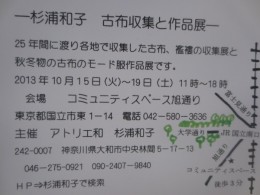 ―杉浦和子　古布収集と作品展―
25年間に渡り各地で収集した古布、襤褸の収集展と
秋冬物の古布のモード服作品展です。
2013年10月15日(火)～19日(土) 11時～18時
会場　コミュニティスペース旭通り
東京都国立市東1－14　電話 042－580－3636
主催　アトリエ和　杉浦和子
242-0007　神奈川県大和市中央林間5－17－13
046－275－0921　090－2407－9840
HP⇒杉浦和子で検索
富士見通り
大学通り
JR国立駅
旭通り
コミュニティスペース
徒歩3分